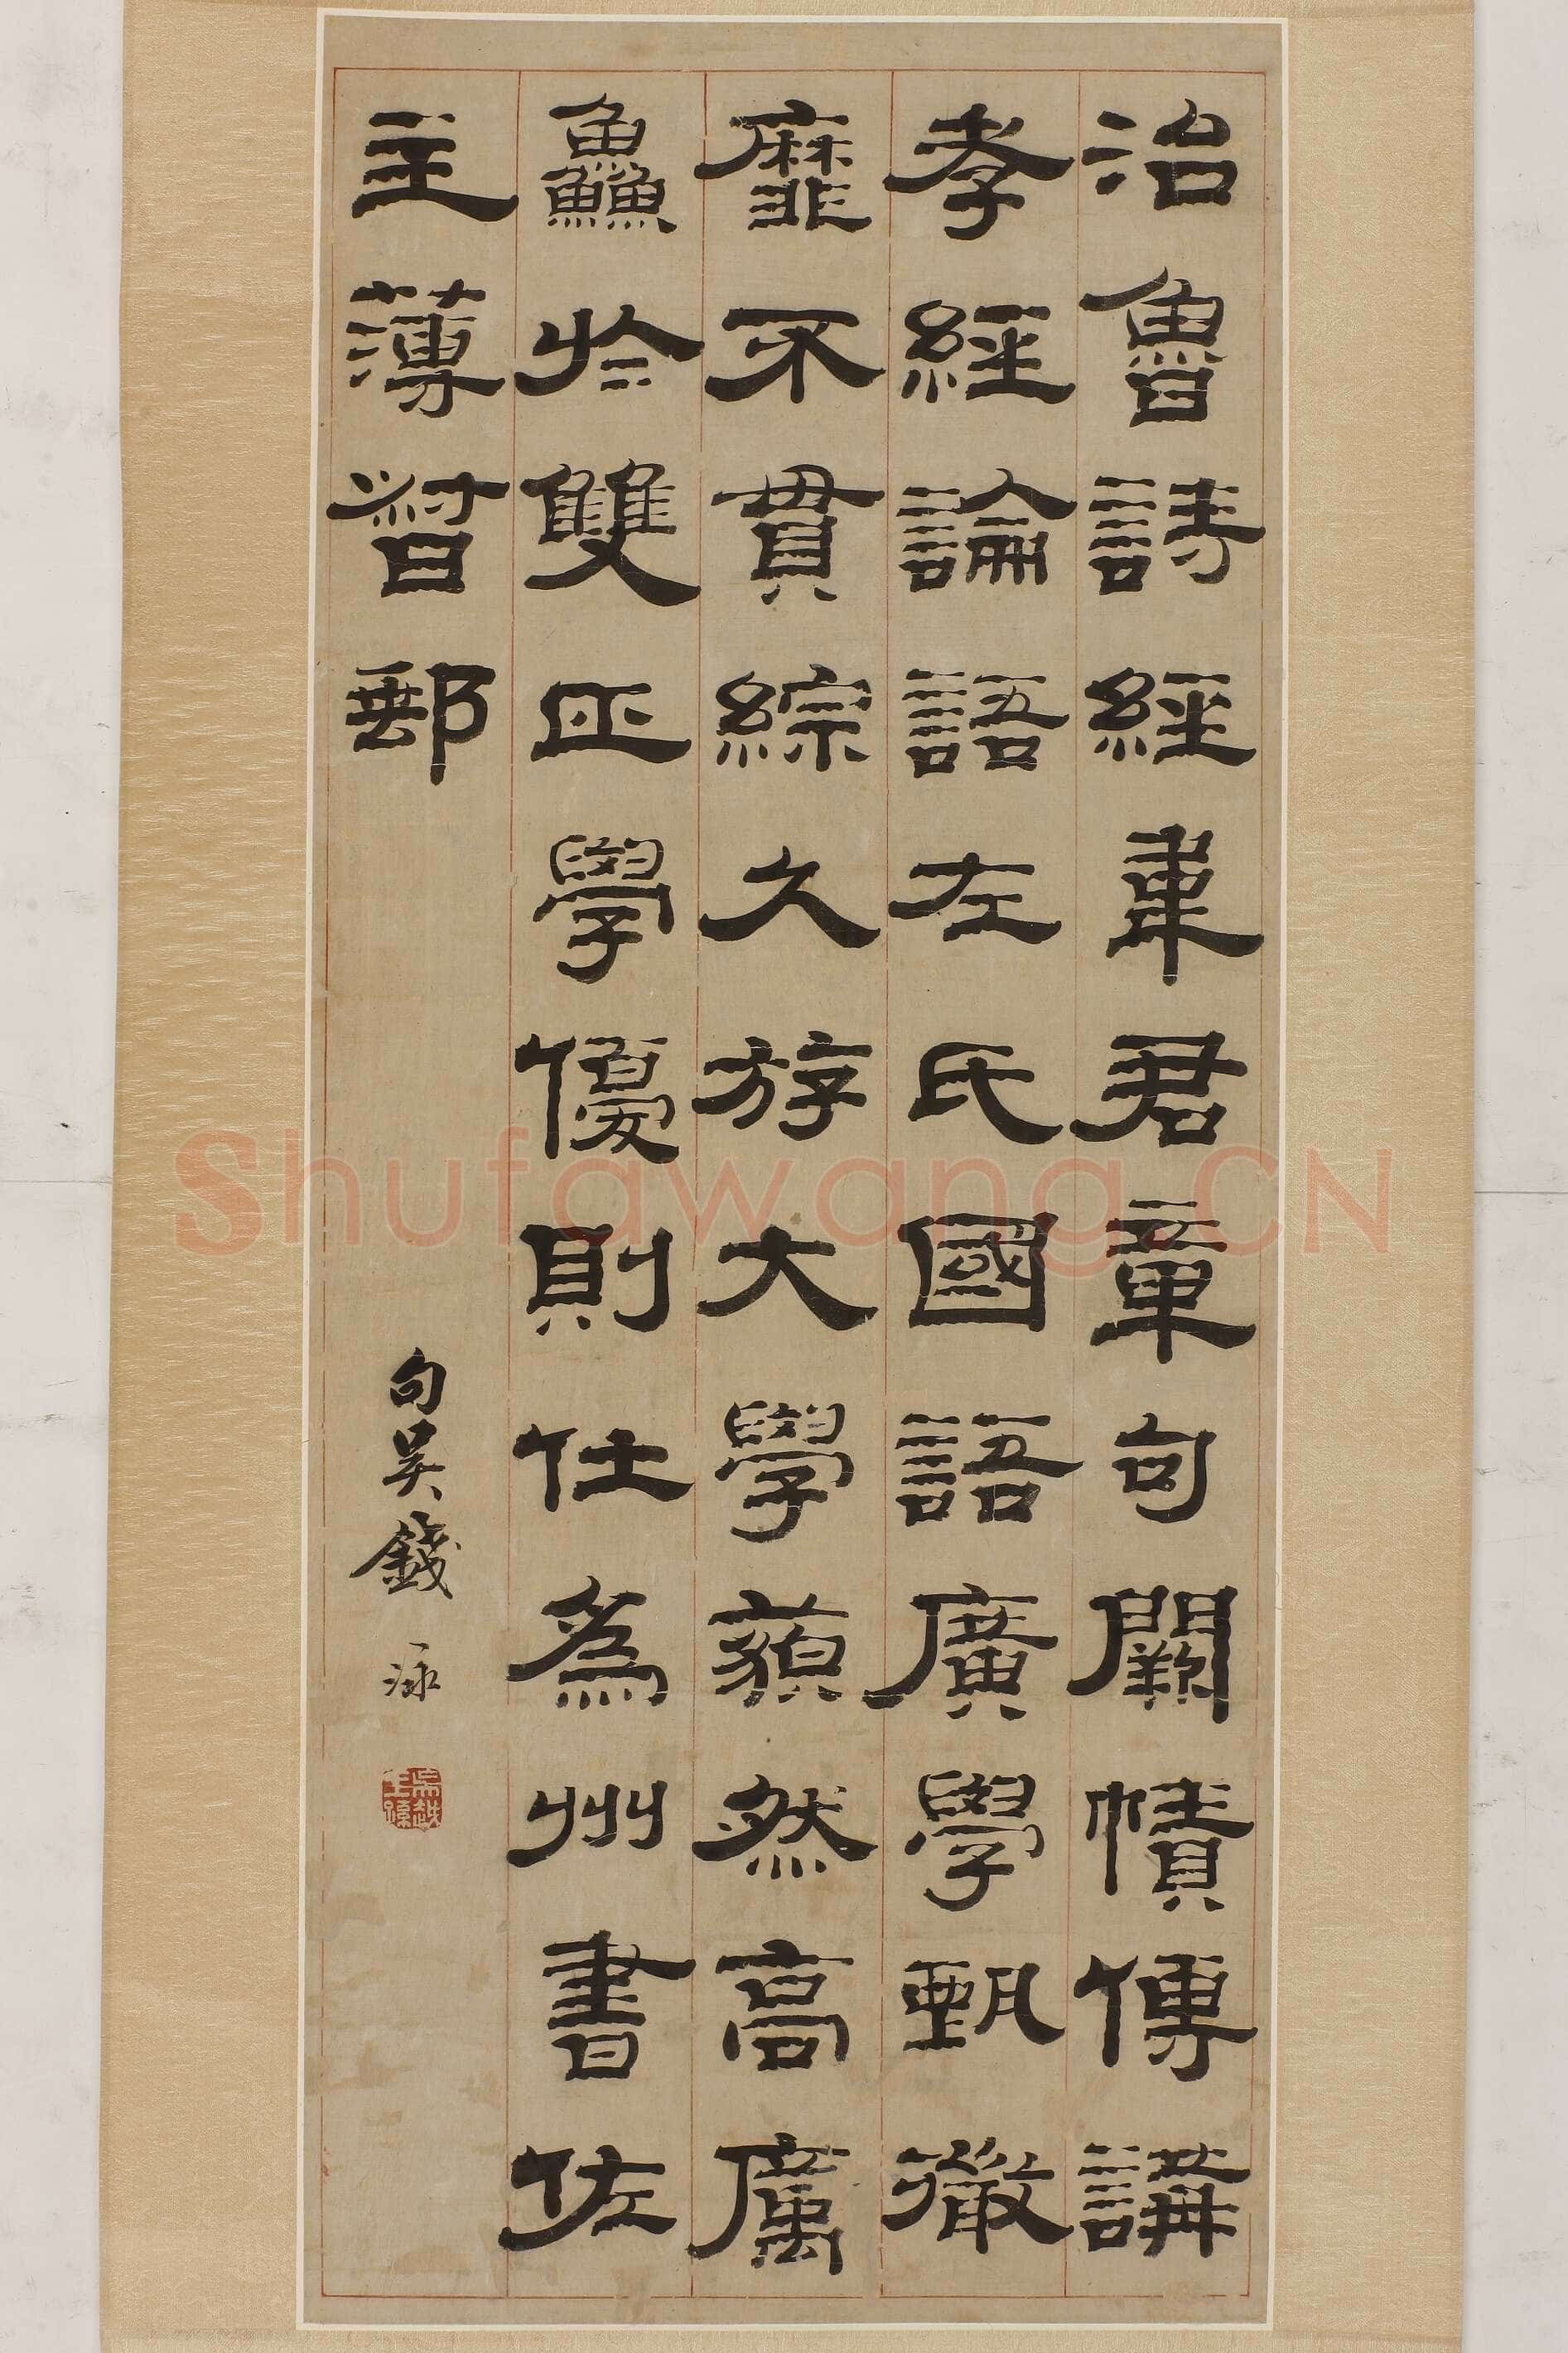 治魯詩經韋君章句闕幘傳講
孝經論語左氏國語廣學甄徹
靡不貫綜久游大學藐然高厲
鱻於雙匹學優則仕為州書佐
主薄督郵
句吳錢泳
吳越王孫
Shufawang.CN